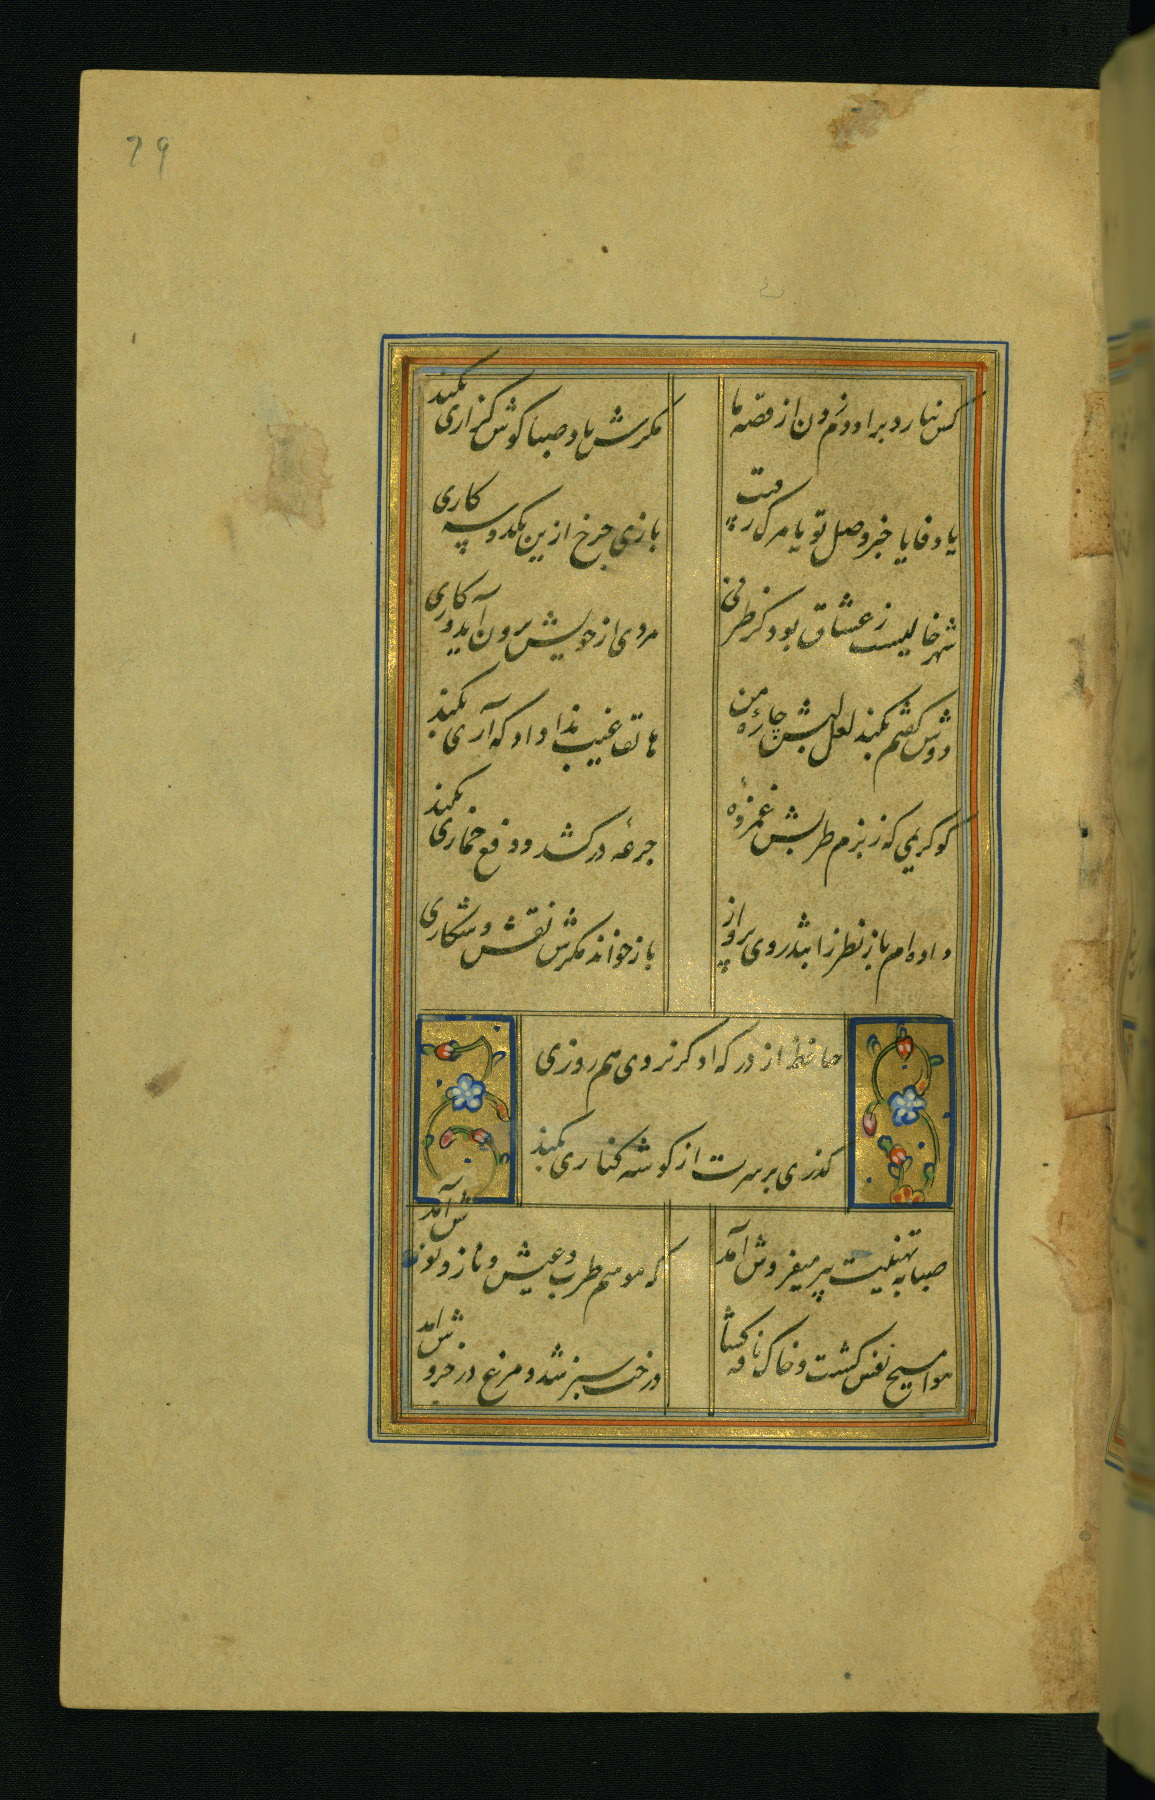 79
کس نیارد بر او دم زدن از قصه ما
مکرش باد صبا کوش کزاری بکند
یا وفا یا خبر وصل تو یا مرک رقیب
بازی چرخ ازین یکدو سه کاری
شهر خالیست ز عشاق بود کز طرفی
مردی از خویش برون آید و کاری
دوش کفتم بکند لعل لبش چارهٔ من
هاتف غیب ندا داد که آری بکند
کو کریمی که ز بزم طربش غمزدهٔ
جرعهٔ درکشد و دفع خماری بکند
داده ام باز نظر را بتذروی پرواز
باز خواند مکرش نقش و شکاری
حافظ از درکه او کر نروی هم روزی
کذری بر سرت از کوشه کناری بکند
صبا به تهنیت پیر میفروش آمد
که موسم طرب و عیش و ناز و نوش آمد
هوا مسیح نفس کشت و خاک نافه کشا
درخت سبز شد و مرغ در خروش آمد